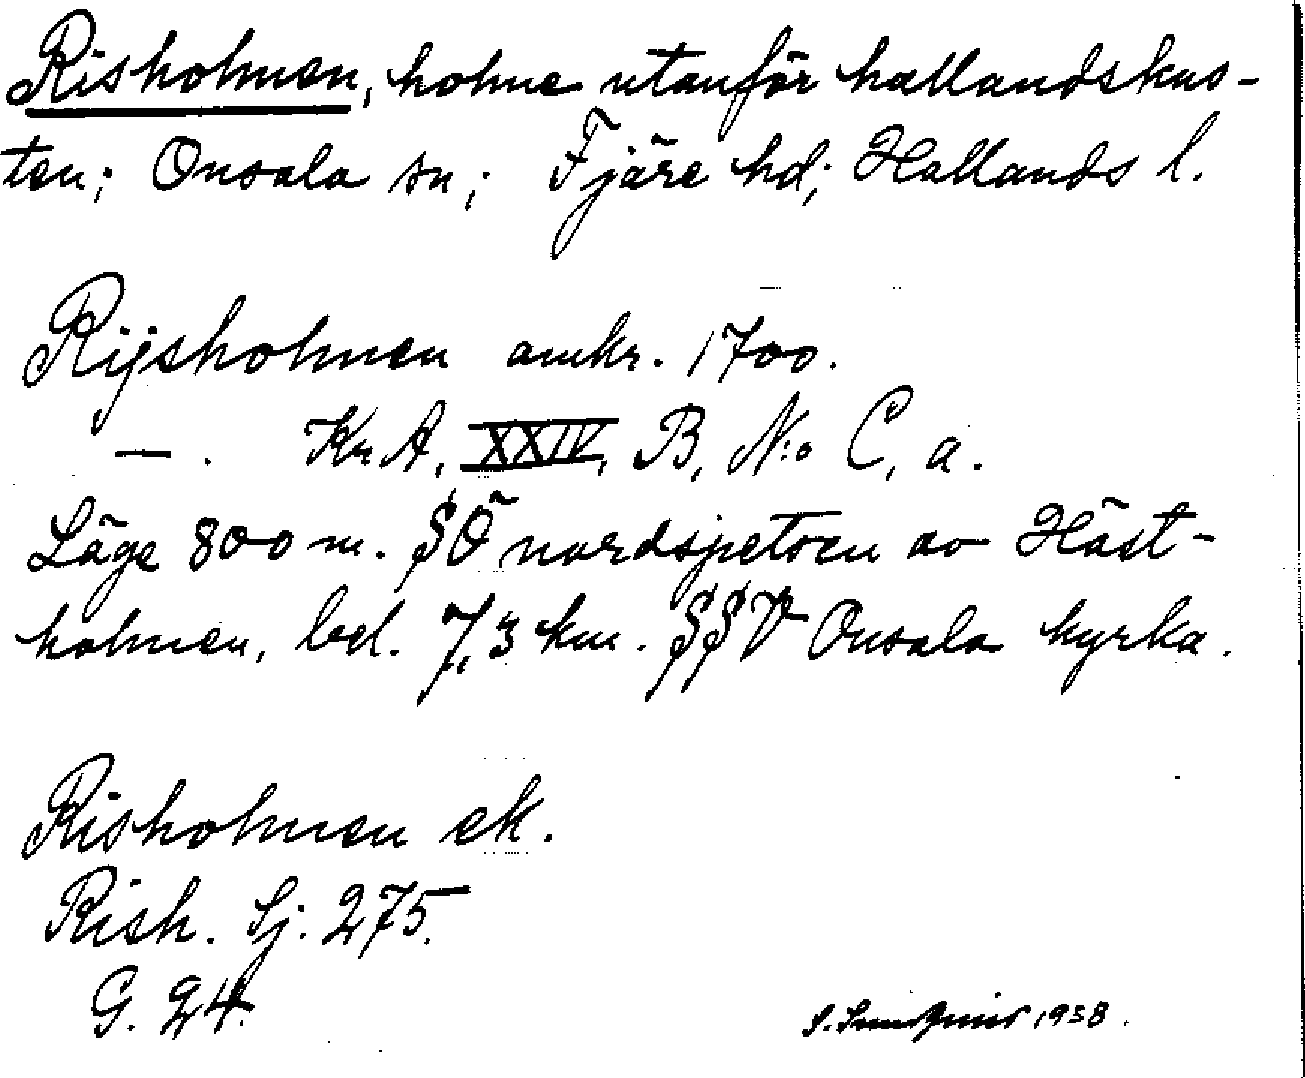 Risholmen, holme utanför hallandskus-
ten; Onsala sn; Fjäre hd; Hallands l.
Rijsholmen omkr. 1700.
— . Kr. A, XXIV, B, N:o C, a.
Läge 800 m. SÖ nordspetsen av Häst-
holmen, bel. 7,3 km. SSV Onsala kyrka.
Risholmen ek.
Rish. Sj. 275.
G. 24.
S. 1938.